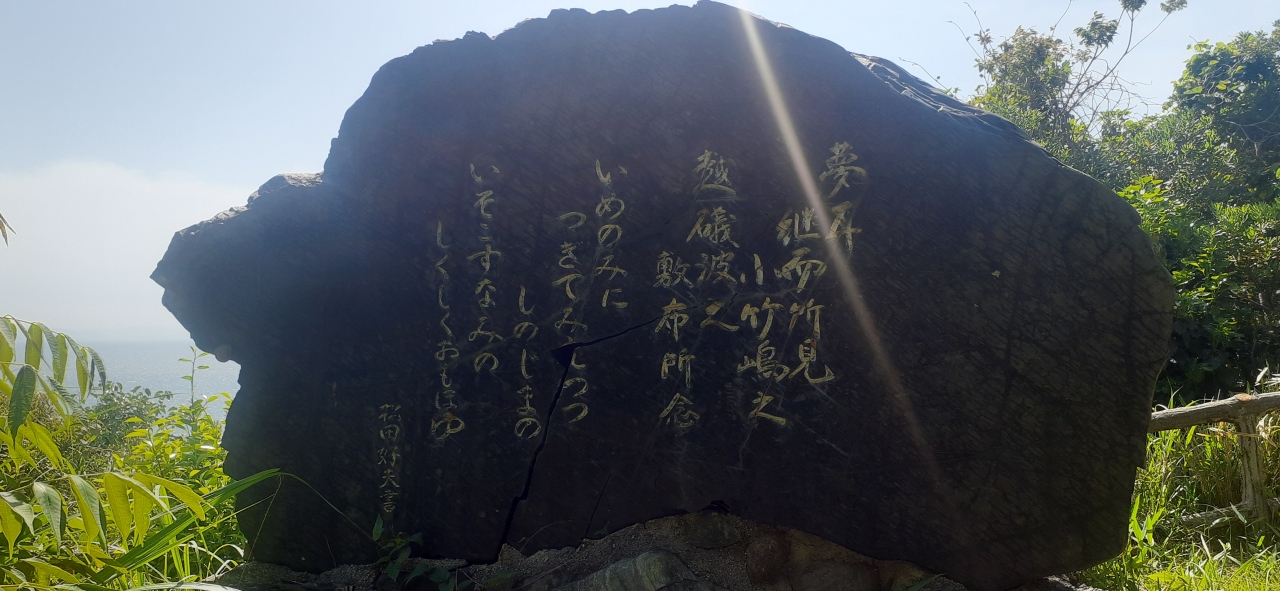 夢耳
継而所見
小竹嶋之
越礒波之
敷布所念
いめのみに
つきてみえつつ
しのじまの
いそこすなみの
しくしくおもほゆ
松田好夫書